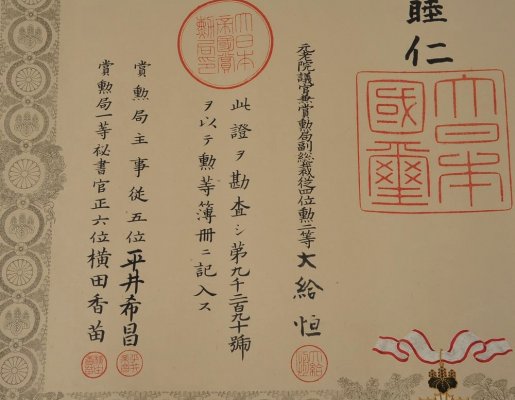 睦仁
大日本國璽
元老院議官兼賞勲局副総裁従四位勲二等大給恒
大日本帝國賞勲局印
此證ヲ勘査シ第九千二百九十號
ヲ以テ勲等簿冊ニ記入ス
賞勲局主事従五位平井希昌
賞勲局一等秘書官正六位横田香苗